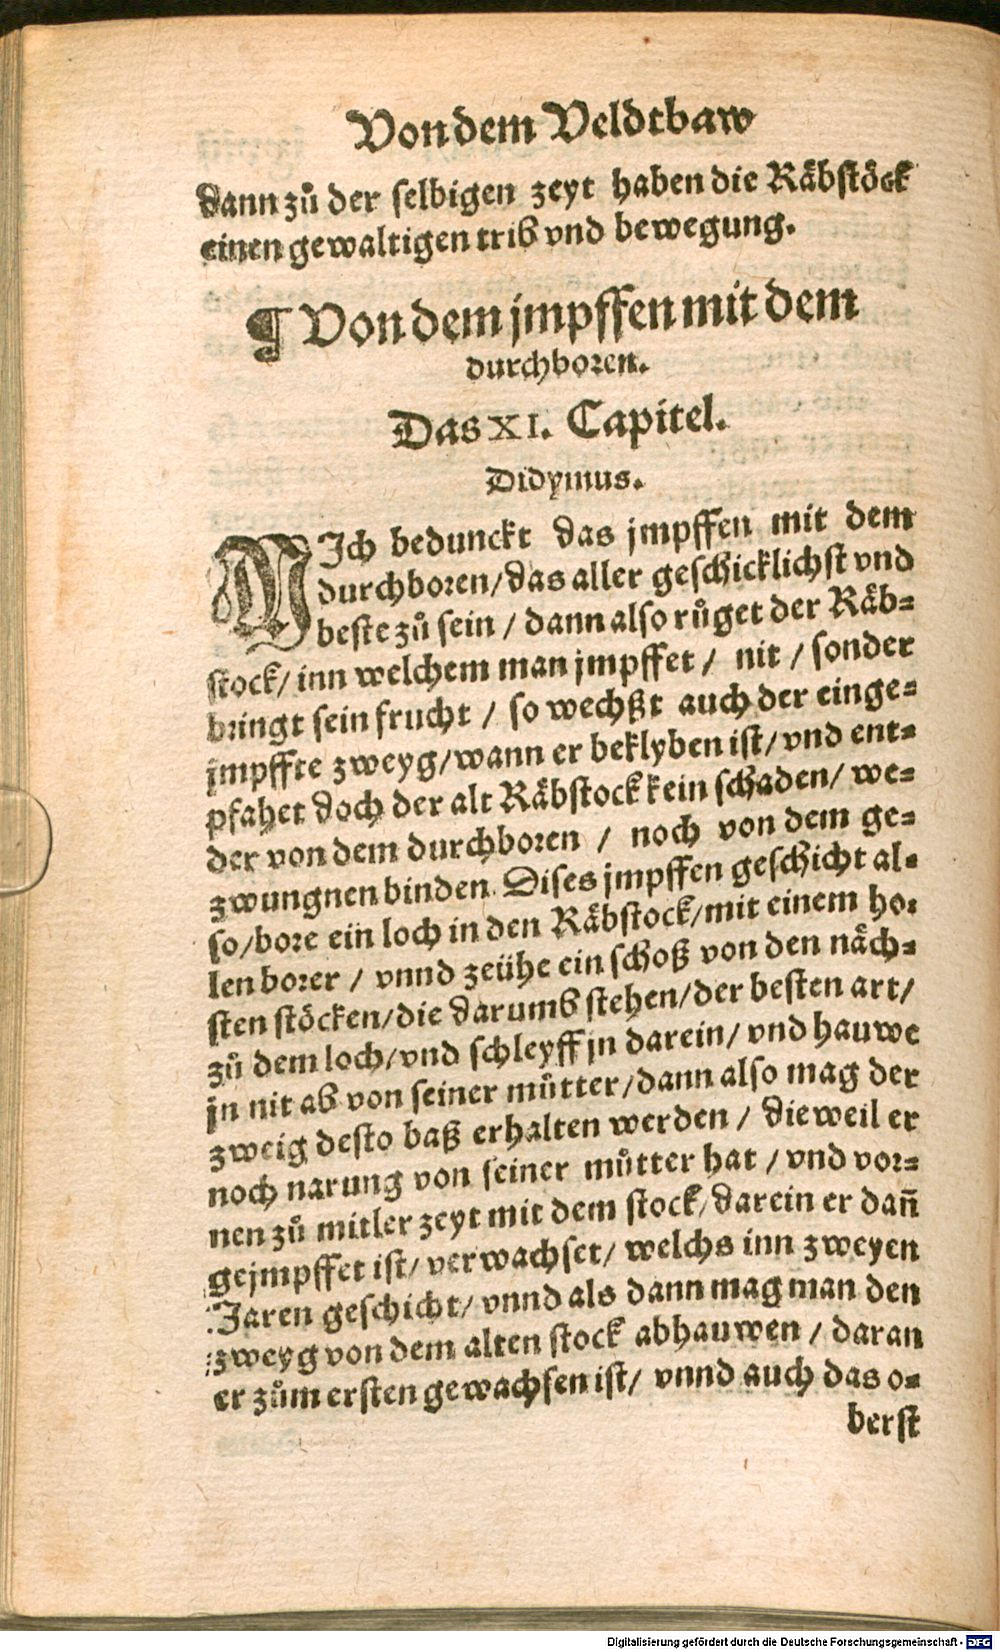 Von dem Veldtbaw
dann zů der selbigen zeyt haben die Räbstöck
einen gewaltigen trib vnd bewegung.
¶ Von dem jmpffen mit dem
durchboren.
Das XI. Capitel.
Didymus.
MIch bedunckt das jmpffen mit dem
durchboren/ das aller geschicklichst vnd
beste zů sein / dann also růget der Räb-
stock/ inn welchem man jmpffet / nit / sonder
bringt sein frucht / so wechßt auch der einge-
jmpffte zweyg/ wann er beklyben ist/ vnd ent-
pfahet doch der alt Räbstock kein schaden/ we-
der von dem durchboren / noch von dem ge-
zwungnen binden. Dises jmpffen geschicht al-
so/ bore ein loch in den Räbstock/ mit einem ho-
len borer / vnnd zeühe ein schoß von den näch-
sten stöcken/ die darumb stehen/ der besten art/
zů dem loch/ vnd schleyff jn darein/ vnd hauwe
jn nit ab von seiner můtter/ dann also mag der
zweig desto baß erhalten werden / dieweil er
noch narung von seiner můtter hat / vnd vor-
nen zů mitler zeyt mit dem stock/ darein er dañ
gejmpffet ist/ verwachset/ welchs inn zweyen
Jaren geschicht/ vnnd als dann mag man den
zweyg von dem alten stock abhauwen / daran
er zům ersten gewachsen ist/ vnnd auch das o-
berst
Digitalisierung gefördert durch die Deutsche Forschungsgemeinschaft - DFG